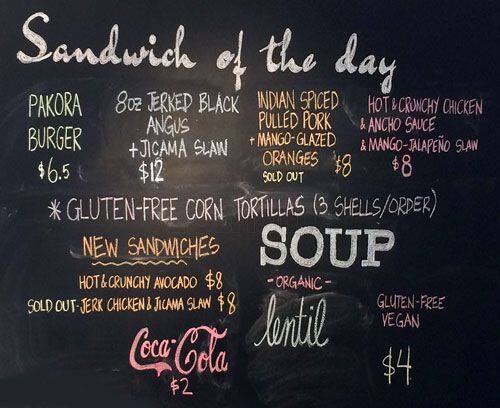 Sandwich of the day
PAKORA
BURGER
$6.5
8oz JERKED BLACK
ANGUS
+ JICAMA SLAW
$12
INDIAN SPICED
PULLED PORK
+ MANGO-GLAZED
ORANGES $8
SOLD OUT
HOT & CRUNCHY CHICKEN
& ANCHO SAUCE
& MANGO-JALAPEÑO SLAW
$8
* GLUTEN-FREE CORN TORTILLAS (3 SHELLS/ORDER)
NEW SANDWICHES
HOT & CRUNCHY AVOCADO $8
SOLD OUT - JERK CHICKEN & JICAMA SLAW $8
Coca-Cola
$2
SOUP
- ORGANIC -
lentil
GLUTEN-FREE
VEGAN
$4